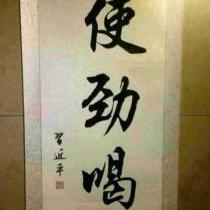 使劲喝
习近平